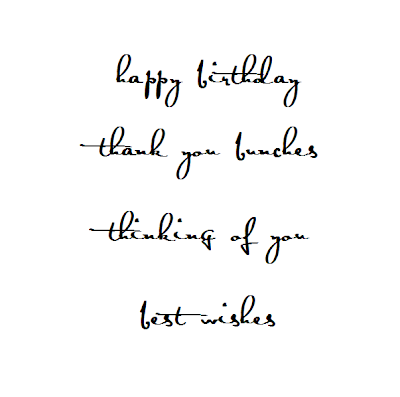 happy birthday
thank you bunches
thinking of you
best wishes